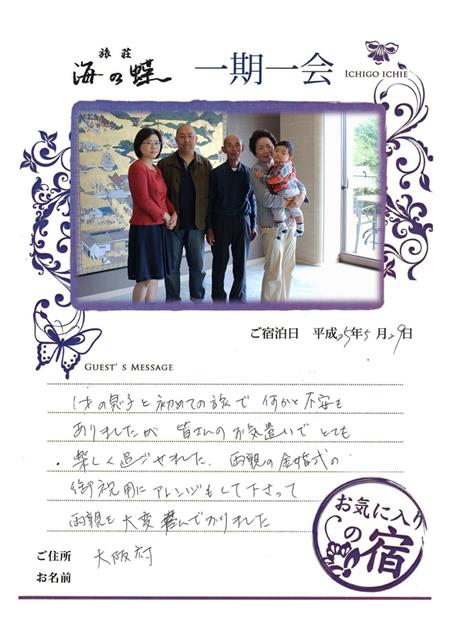 旅荘
海の蝶
一期一会
ICHIGO ICHIE
ご宿泊日 平成25年5月29日
GUEST'S MESSAGE
1才の息子と初めての旅で 何かと不安も
ありましたが 皆さんのお気遣いでとても
楽しく過ごせました。両親の金婚式の
御祝用にアレンジもして下さって
両親も大変喜んでおりました
お気に入り
の宿
ご住所 大阪府
お名前